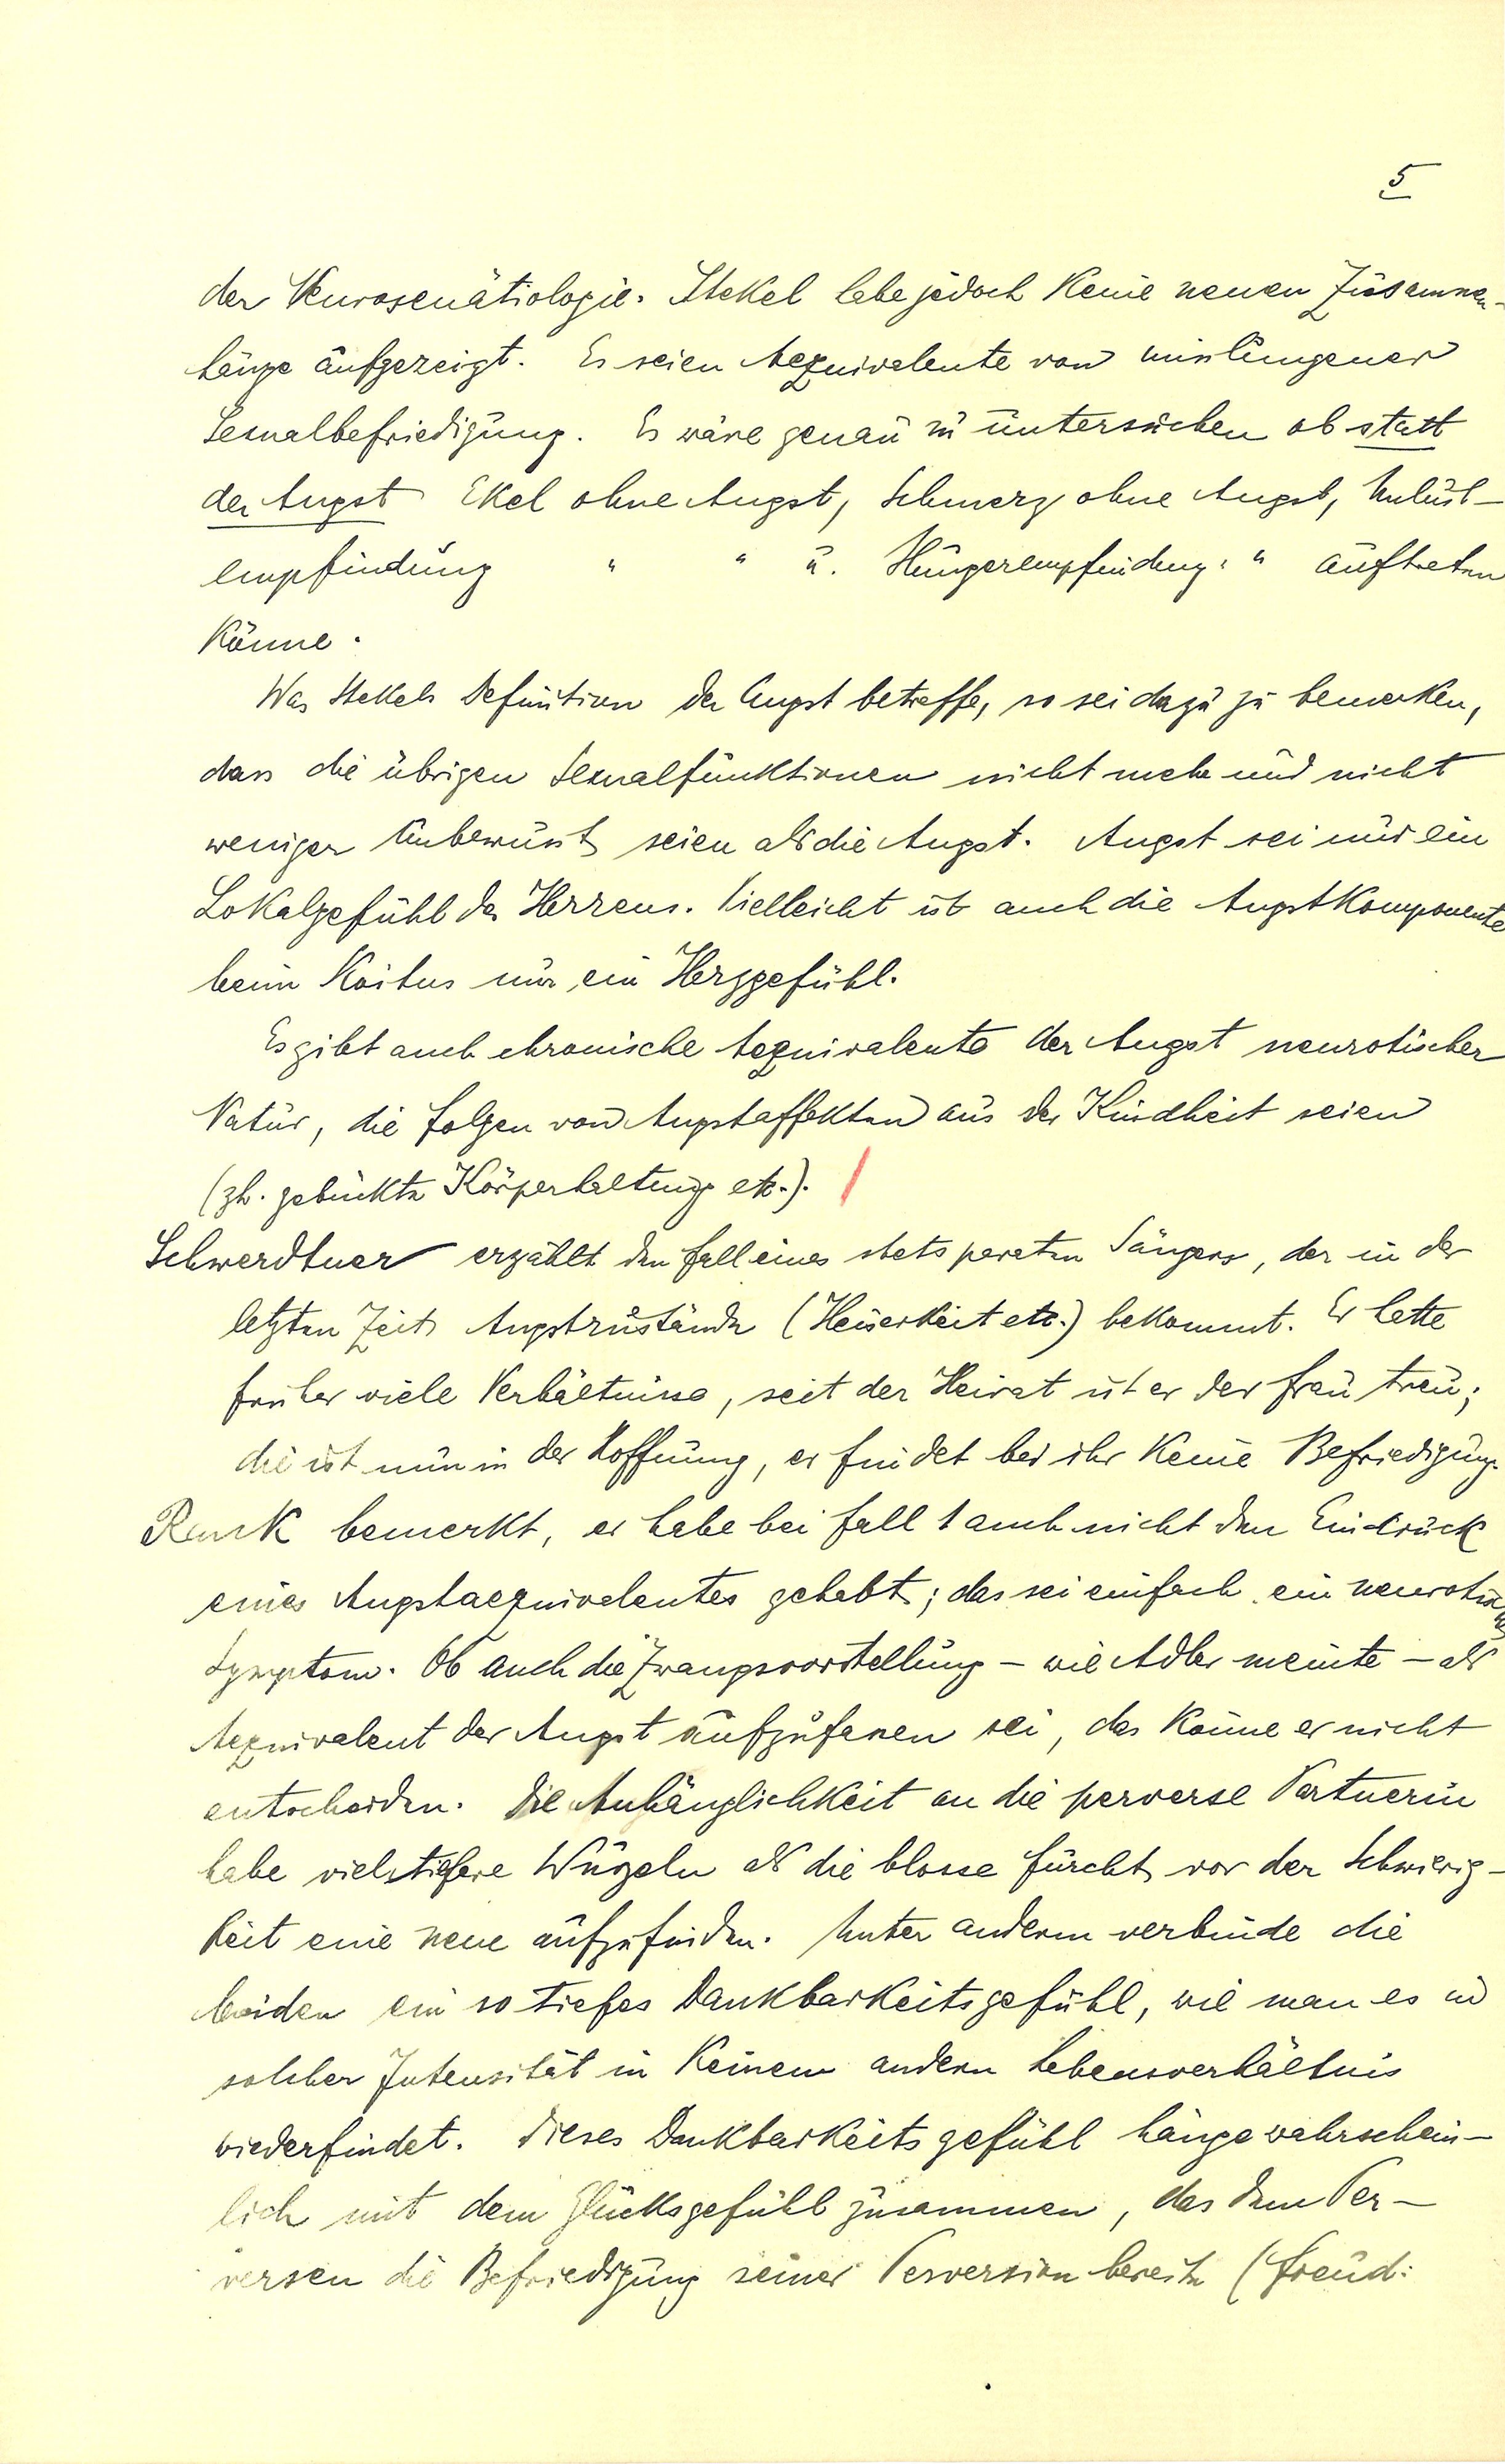 5
der Neurosenätiologie. Stekel habe jedoch keine neuen Zusammen-
hänge aufgezeigt. Es seien Aequivalente von misslungener
Sexualbefriedigung. Es wäre genau zu untersuchen ob statt
der Angst Ekel ohne Angst, Schmerz ohne Angst, Unlust-
empfindung " " u. Hungerempfindung " " auftreten
könne.
Was Stekels Definition der Angst betreffe, so sei dazu zu bemerken,
dass die übrigen Sexualfunktionen nicht mehr und nicht
weniger Unbewusst seien als die Angst. Angst sei nur ein
Lokalgefühl des Herzens. Vielleicht ist auch die Angstkomponente
beim Koitus nur ein Herzgefühl.
Es gibt auch chronische Aequivalente der Angst neurotischer
Natur, die Folgen von Angstaffekten aus der Kindheit seien
(zb. gebückte Körperhaltung etc.).
Schwerdtner erzählt den Fall eines stets Sängers, der in der
letzten Zeit Angstzustände (Heiserkeit etc.) bekommt. Er hatte
früher viele Verhältnisse, seit der Heirat ist er der Frau treu;
die ist nun in der Hoffnung, er findet bei ihr keine Befriedigung.
Rank bemerkt, er habe bei Fall 1 auch nicht den Eindruck
eines Angstaequivalentes gehabt; das sei einfach ein neurotisches
Symptom. Ob auch die Zwangsvorstellung – wie Adler meinte – als
Aequivalent der Angst aufzufassen sei, das könne er nicht
entscheiden. Die Anhänglichkeit an die perverse Partnerin
habe viel tiefere Wurzeln als die blosse Furcht vor der Schwierig-
keit eine neue aufzufinden. Unter anderm verbinde die
beiden ein so tiefes Dankbarkeitsgefühl, wie man es in
solcher Intensität in keinem andern Lebensverhältnis
wiederfindet. Dieses Dankbarkeitsgefühl hänge wahrschein-
lich mit dem Glücksgefühl zusammen, das dem Per-
versen die Befriedigung seiner Perversion bereite (Freud: